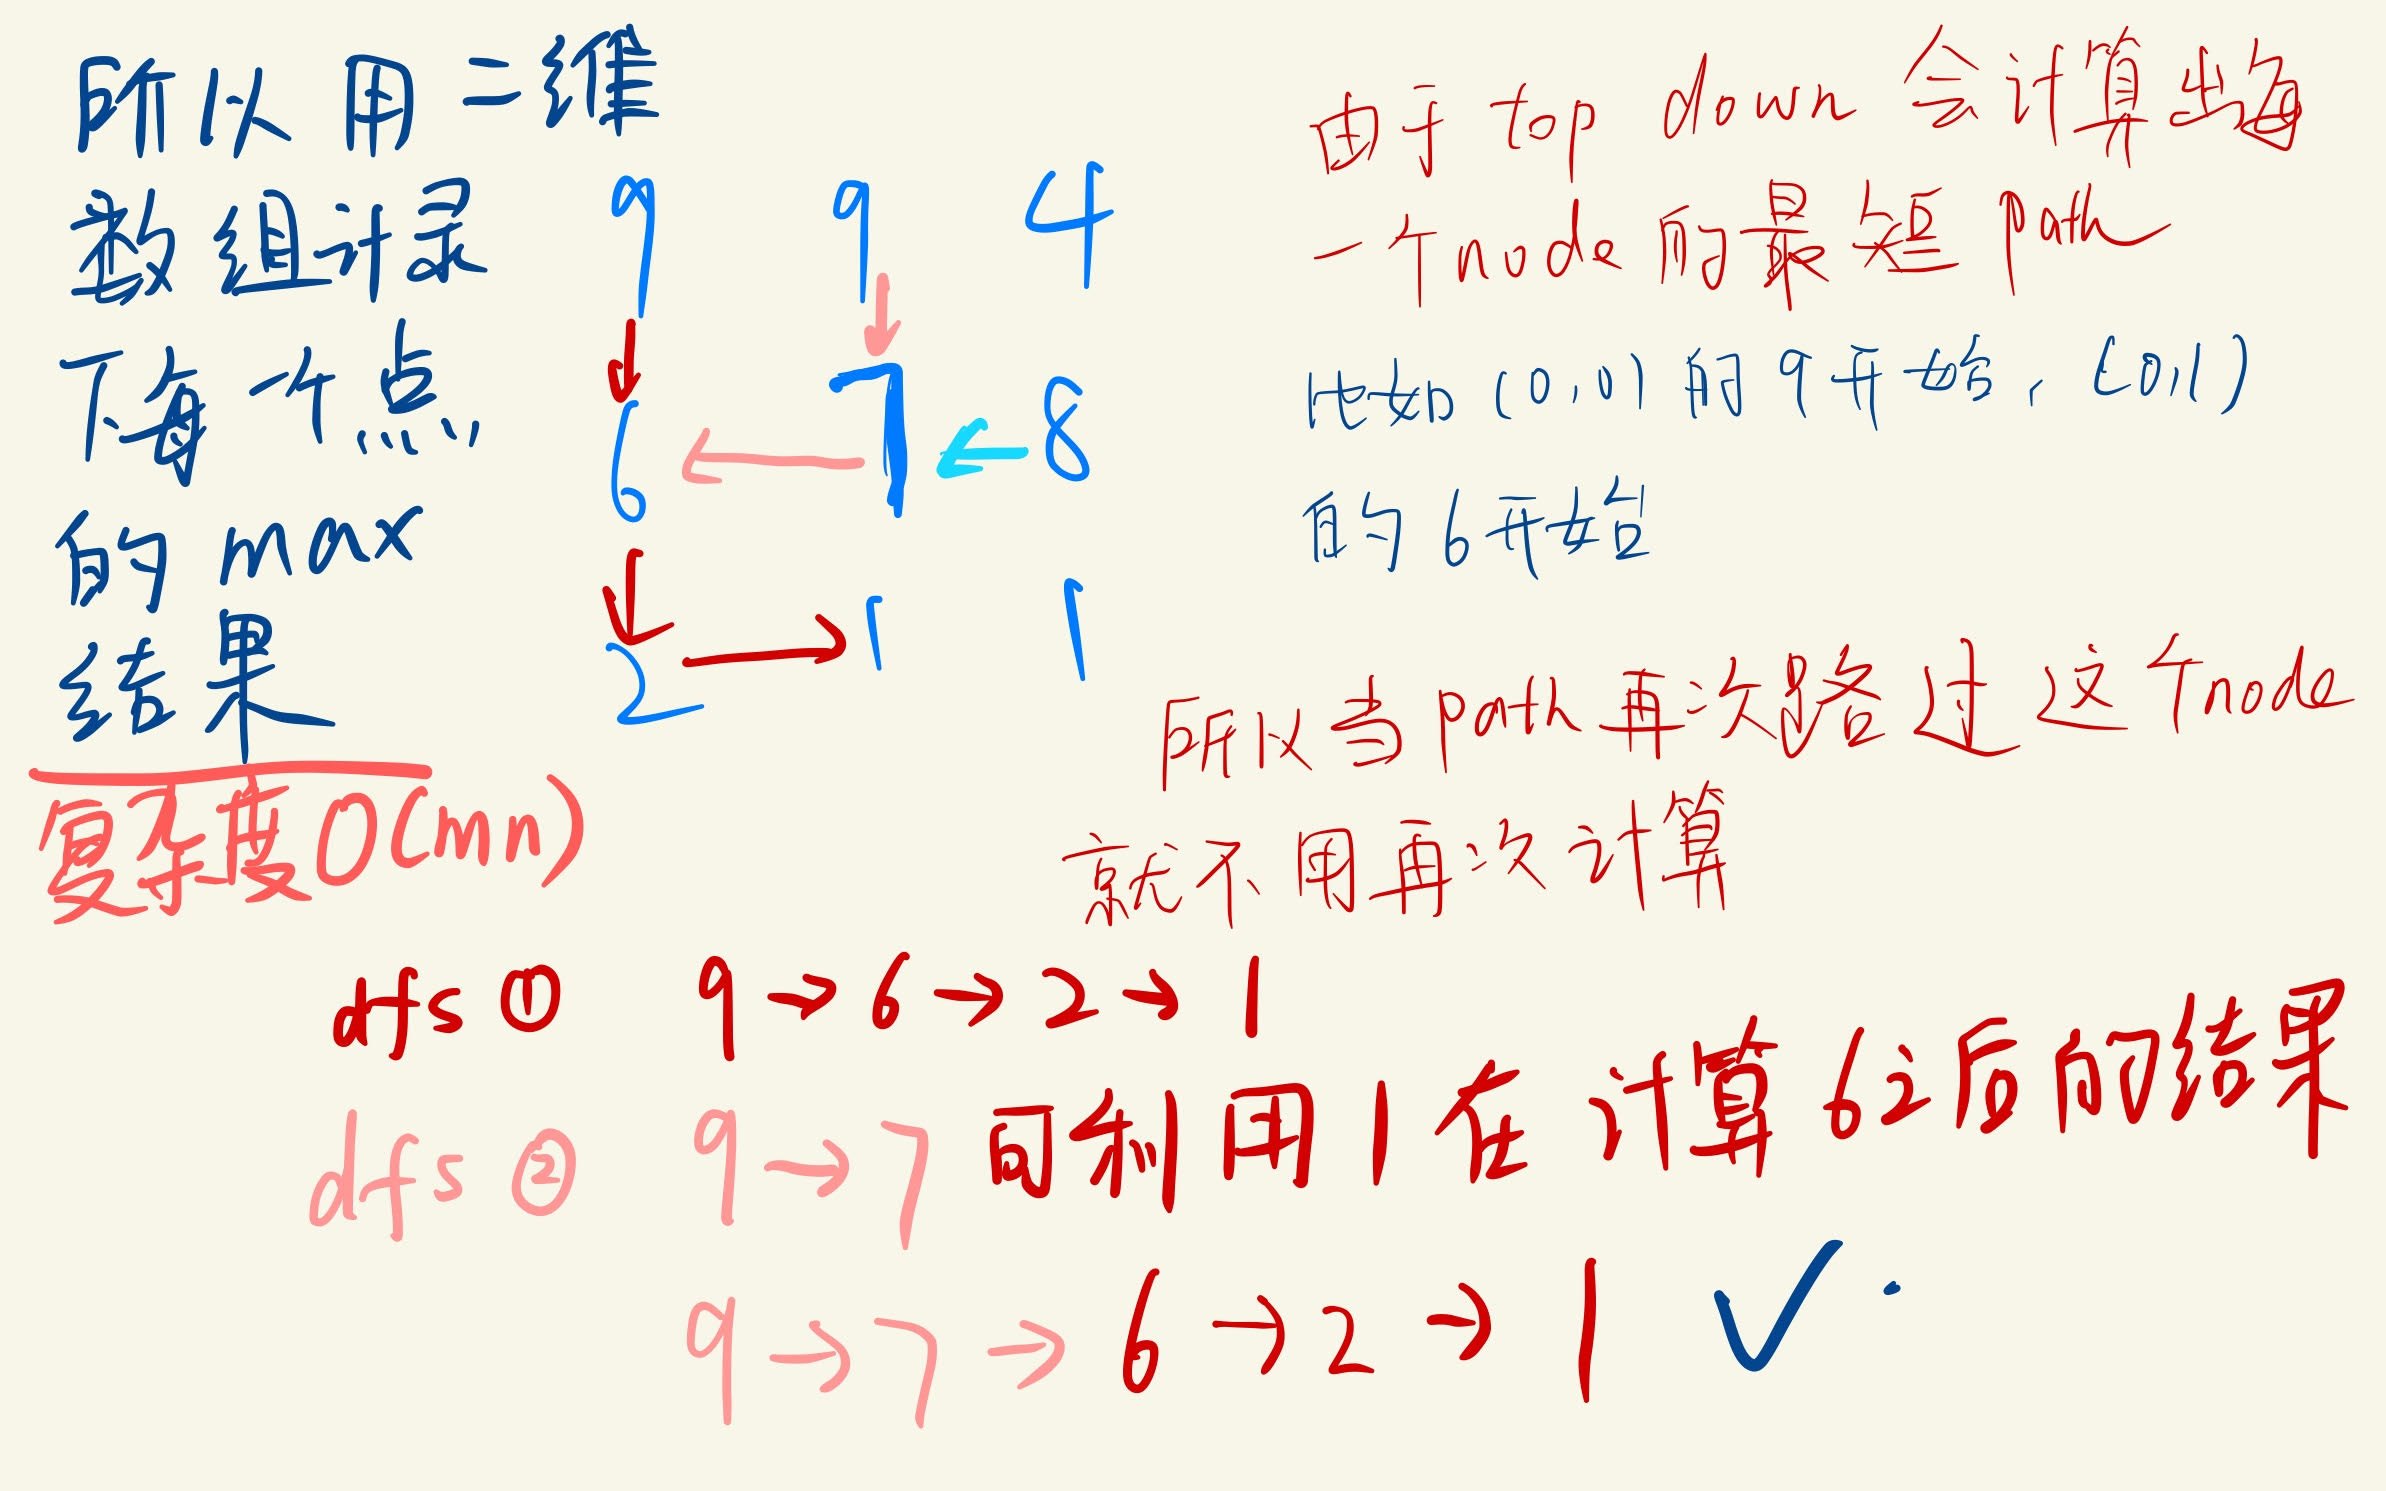 所以用二维
数组计录
下每个点,
的max
结果
复杂度O(mn)
9 9 4
6 7 8
2 1 1
由于top down 会计算出每
一个node的最短path
比如(0,0)的9开始, (0,1)
的6开始
所以当path再次路过这个node
就不用再次计算
dfs ① 9→6→2→1
dfs ② 9→7 可利用1在计算6之后的结果
9→7→6→2→1 ✓